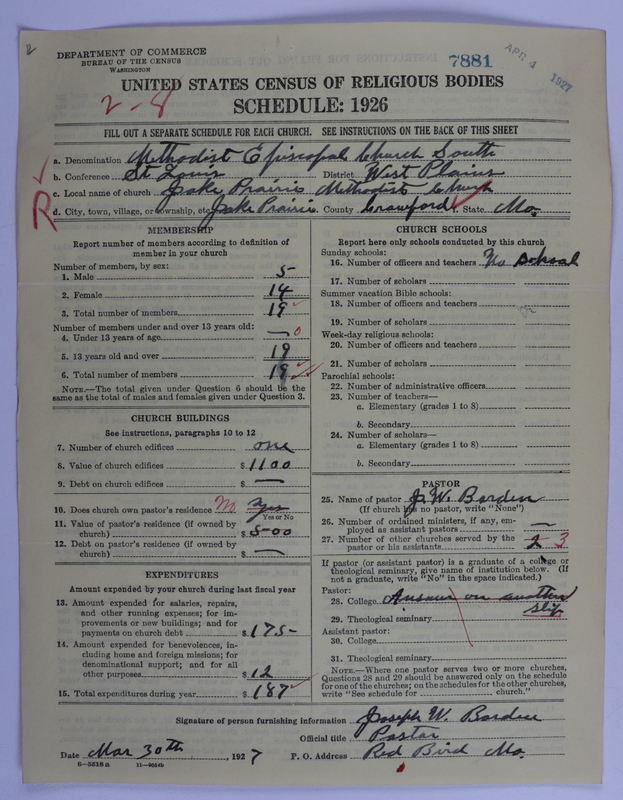 DEPARTMENT OF COMMERCE
BUREAU OF THE CENSUS
WASHINGTON
7881
APR 4 1927
UNITED STATES CENSUS OF RELIGIOUS BODIES
2-8
SCHEDULE: 1926
FILL OUT A SEPARATE SCHEDULE FOR EACH CHURCH. SEE INSTRUCTIONS ON THE BACK OF THIS SHEET
a. Denomination Methodist Episcopal Church South
b. Conference St Louis District West Plains
c. Local name of church Jake Prairie Methodist Church
R
d. City, town, village, or township, etc Jake Prairie County Crawford State Mo.
MEMBERSHIP
Report number of members according to definition of
member in your church
Number of members, by sex:
1. Male 5
2. Female 14
3. Total number of members 19
Number of members under and over 13 years old:
4. Under 13 years of age — 0
5. 13 years old and over 19
6. Total number of members 19
NOTE.—The total given under Question 6 should be the
same as the total of males and females given under Question 3.
CHURCH BUILDINGS
See instructions, paragraphs 10 to 12
7. Number of church edifices one
8. Value of church edifices $1100
9. Debt on church edifices $ —
10. Does church own pastor's residence No Yes
Yes or No
11. Value of pastor's residence (if owned by
church) $500
12. Debt on pastor's residence (if owned by
church) $ —
EXPENDITURES
Amount expended by your church during last fiscal year
13. Amount expended for salaries, repairs,
and other running expenses; for im-
provements or new buildings; and for
payments on church debt $175-
14. Amount expended for benevolences, in-
cluding home and foreign missions; for
denominational support; and for all
other purposes $12
15. Total expenditures during year $187
CHURCH SCHOOLS
Report here only schools conducted by this church
Sunday schools:
16. Number of officers and teachers No School
17. Number of scholars
Summer vacation Bible schools:
18. Number of officers and teachers
19. Number of scholars
Week-day religious schools:
20. Number of officers and teachers
21. Number of scholars
Parochial schools:
22. Number of administrative officers
23. Number of teachers—
a. Elementary (grades 1 to 8)
b. Secondary
24. Number of scholars—
a. Elementary (grades 1 to 8)
b. Secondary
PASTOR
25. Name of pastor J. W. Borden
(If church has no pastor, write "None")
26. Number of ordained ministers, if any, em-
ployed as assistant pastors —
27. Number of other churches served by the
pastor or his assistants 2 3
If pastor (or assistant pastor) is a graduate of a college or
theological seminary, give name of institution below. (If
not a graduate, write "No" in the space indicated.)
Pastor:
28. College Answer on another
slip
29. Theological seminary
Assistant pastor:
30. College
31. Theological seminary
NOTE.—Where one pastor serves two or more churches,
Questions 28 and 29 should be answered only on the schedule
for one of the churches; on the schedules for the other churches,
write "See schedule for church."
Signature of person furnishing information Joseph W. Borden
Official title Pastor
Date Mar 30th, 1927 P. O. Address Red Bird Mo.
8-5518a 11-9054b